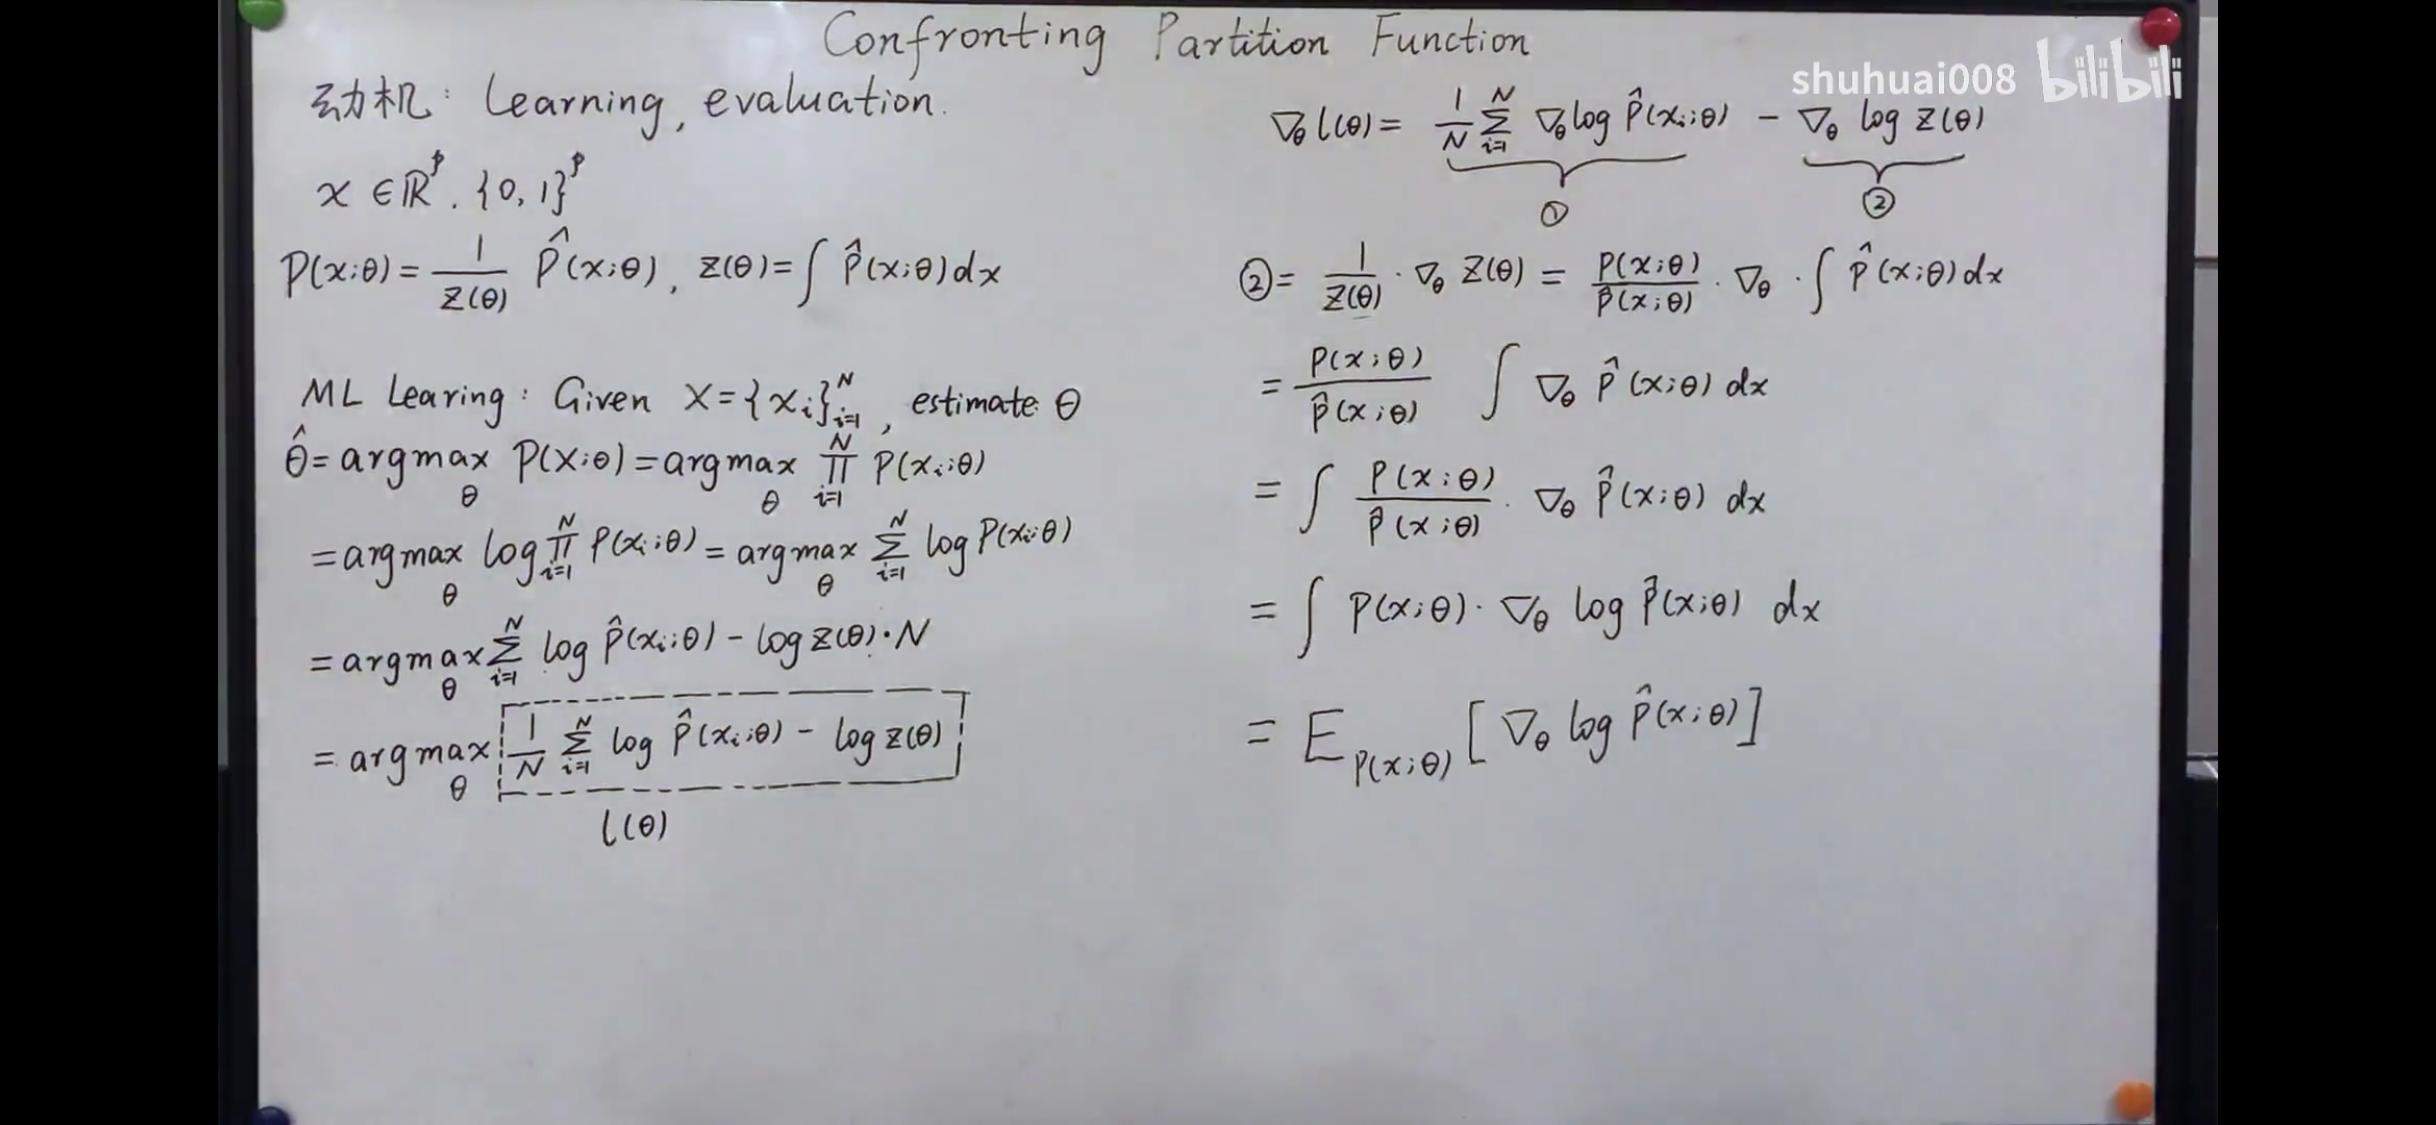 Confronting Partition Function
shuhuai008 bilibili
动机: Learning, evaluation.
x ∈ ℝ^p, {0, 1}^p
P(x;θ) = 1/Z(θ) P̂(x;θ), Z(θ) = ∫ P̂(x;θ) dx
ML Learing: Given X = {x_i}_{i=1}^N, estimate θ
θ̂ = argmax_θ P(X;θ) = argmax_θ ∏_{i=1}^N P(x_i;θ)
= argmax_θ log ∏_{i=1}^N P(x_i;θ) = argmax_θ ∑_{i=1}^N log P(x_i;θ)
= argmax_θ ∑_{i=1}^N log P̂(x_i;θ) - log Z(θ)·N
= argmax_θ 1/N ∑_{i=1}^N log P̂(x_i;θ) - log Z(θ)
l(θ)
∇_θ l(θ) = 1/N ∑_{i=1}^N ∇_θ log P̂(x_i;θ) - ∇_θ log Z(θ)
① ②
② = 1/Z(θ) · ∇_θ Z(θ) = P(x;θ)/P̂(x;θ) · ∇_θ · ∫ P̂(x;θ) dx
= P(x;θ)/P̂(x;θ) ∫ ∇_θ P̂(x;θ) dx
= ∫ P(x;θ)/P̂(x;θ) · ∇_θ P̂(x;θ) dx
= ∫ P(x;θ) · ∇_θ log P̂(x;θ) dx
= E_{P(x;θ)} [∇_θ log P̂(x;θ)]